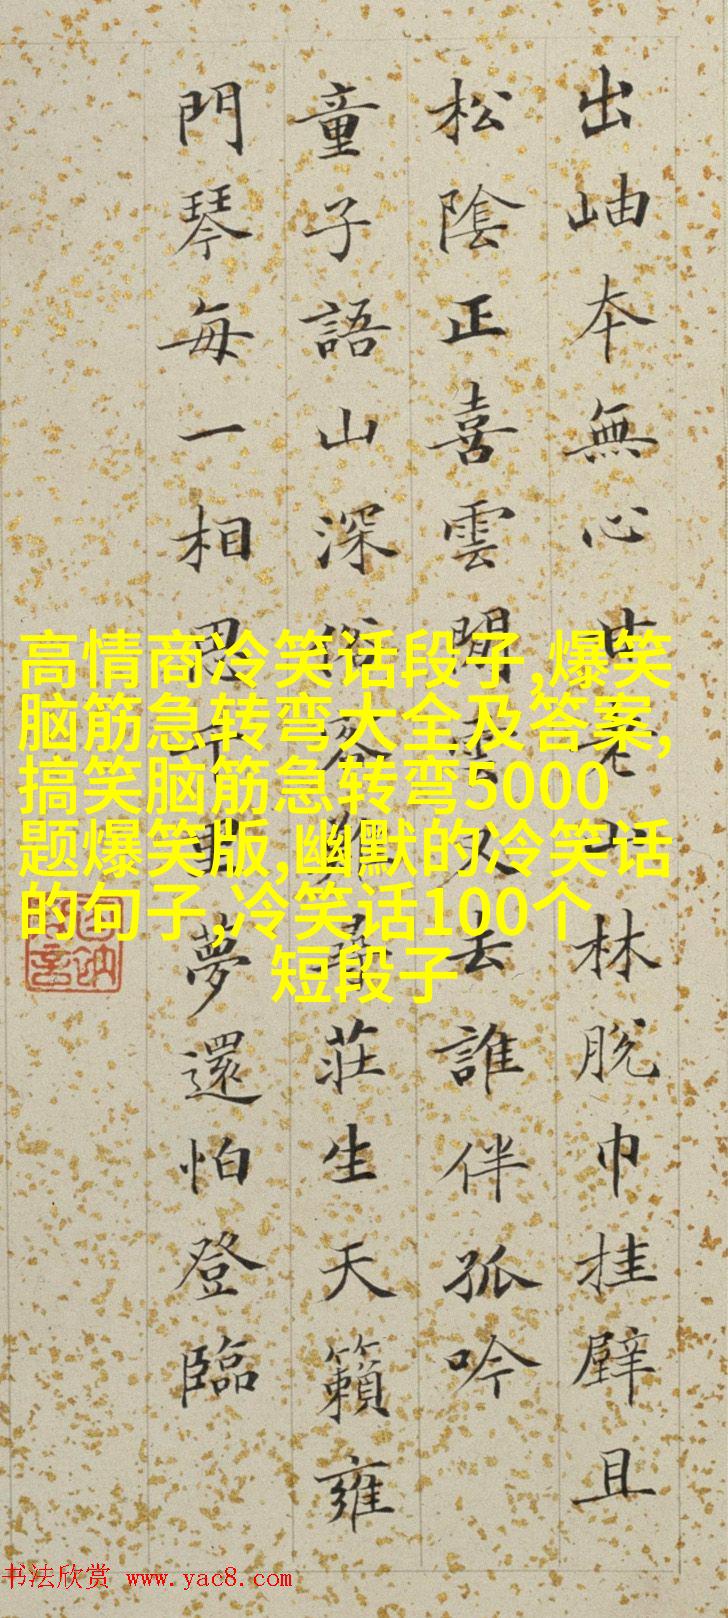 出岫本無心甘老山林脫巾挂壁且
松陰正喜雲閒雲又去誰伴孤吟
童子語山深俗客難尋莊生天籟雍
門琴每一相思千里夢還怕登臨
高情商冷笑话段子,爆笑
脑筋急转弯大全及答案,
搞笑脑筋急转弯5000
题爆笑版,幽默的冷笑话
的句子,冷笑话100个
短段子
书法欣赏 www.yac8.com